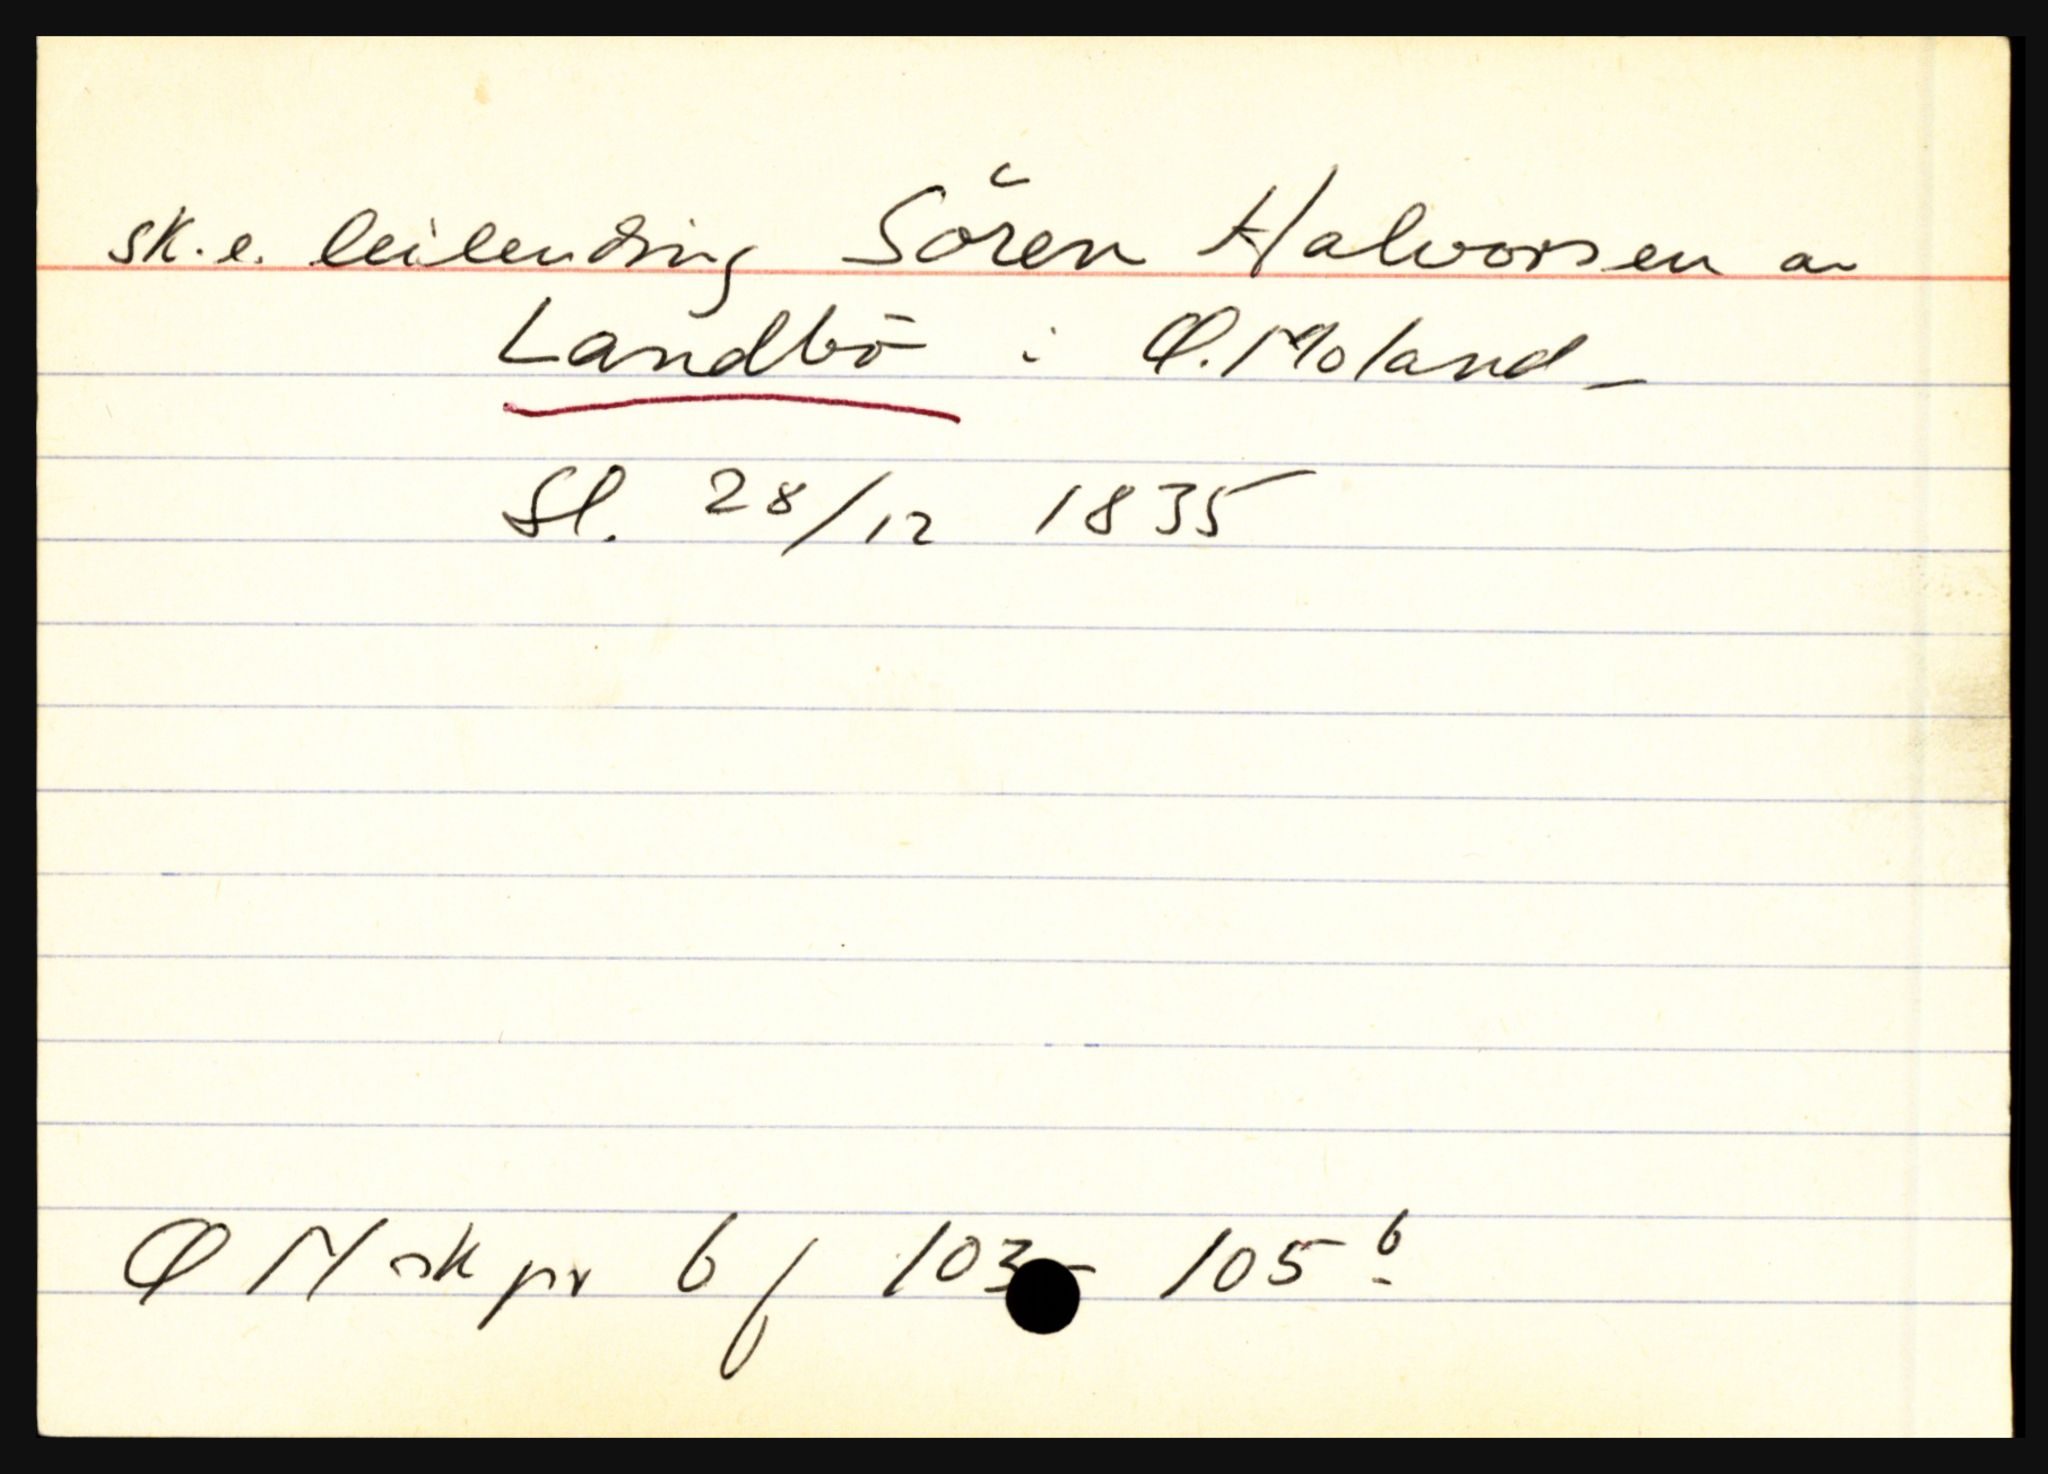 sk.e. leilending Sören Halvorsen av
Landbö i Ø. Moland –
Sl. 28/12 1835
Ø M sk pr 6 f 103 – 105 b